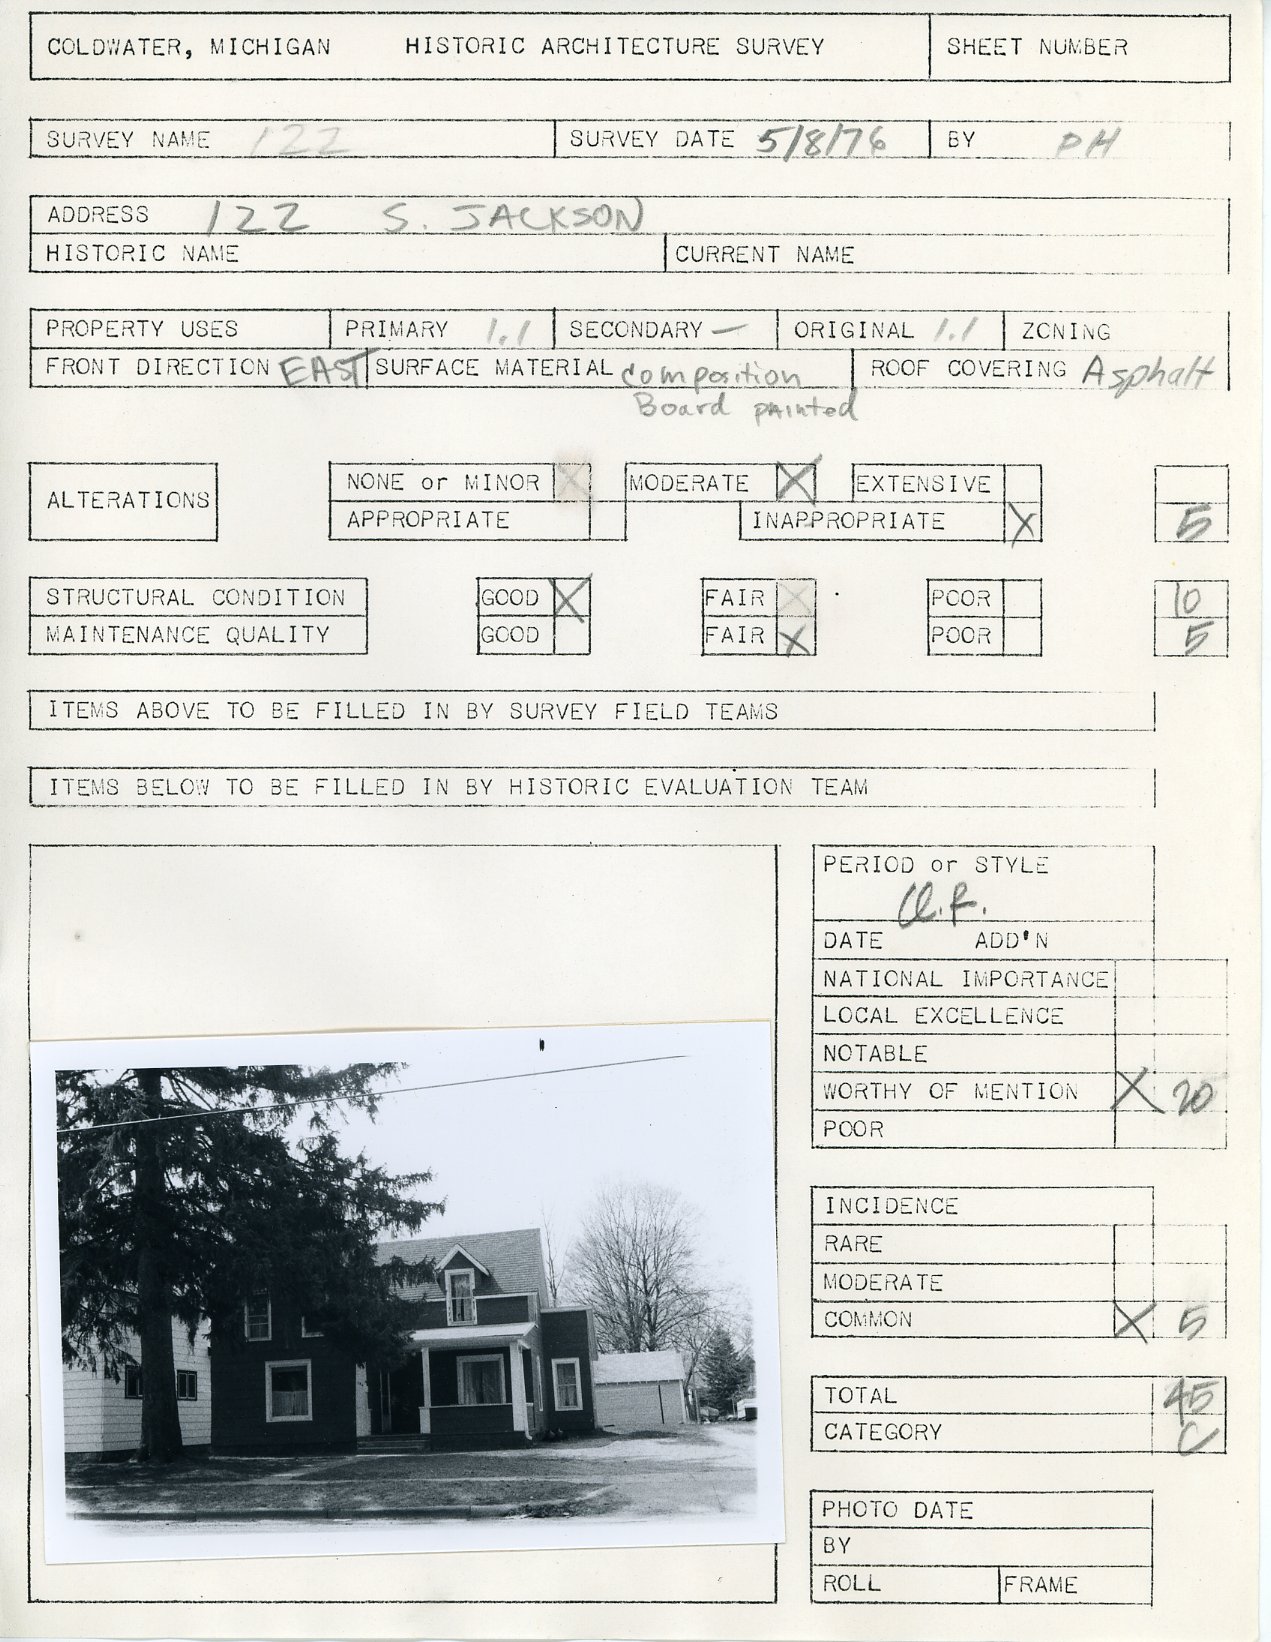 COLDWATER, MICHIGAN HISTORIC ARCHITECTURE SURVEY SHEET NUMBER
SURVEY NAME 122 SURVEY DATE 5/8/76 BY PH
ADDRESS 122 S. JACKSON
HISTORIC NAME CURRENT NAME
PROPERTY USES PRIMARY 1.1 SECONDARY — ORIGINAL 1.1 ZONING
FRONT DIRECTION EAST SURFACE MATERIAL composition ROOF COVERING Asphalt
Board painted
ALTERATIONS NONE or MINOR X MODERATE X EXTENSIVE
APPROPRIATE INAPPROPRIATE X 5
STRUCTURAL CONDITION GOOD X FAIR X POOR 10
MAINTENANCE QUALITY GOOD FAIR X POOR 5
ITEMS ABOVE TO BE FILLED IN BY SURVEY FIELD TEAMS
ITEMS BELOW TO BE FILLED IN BY HISTORIC EVALUATION TEAM
PERIOD or STYLE
DATE ADD'N
NATIONAL IMPORTANCE
LOCAL EXCELLENCE
NOTABLE
WORTHY OF MENTION X 20
POOR
INCIDENCE
RARE
MODERATE
COMMON X 5
TOTAL 45
CATEGORY C
PHOTO DATE
BY
ROLL FRAME